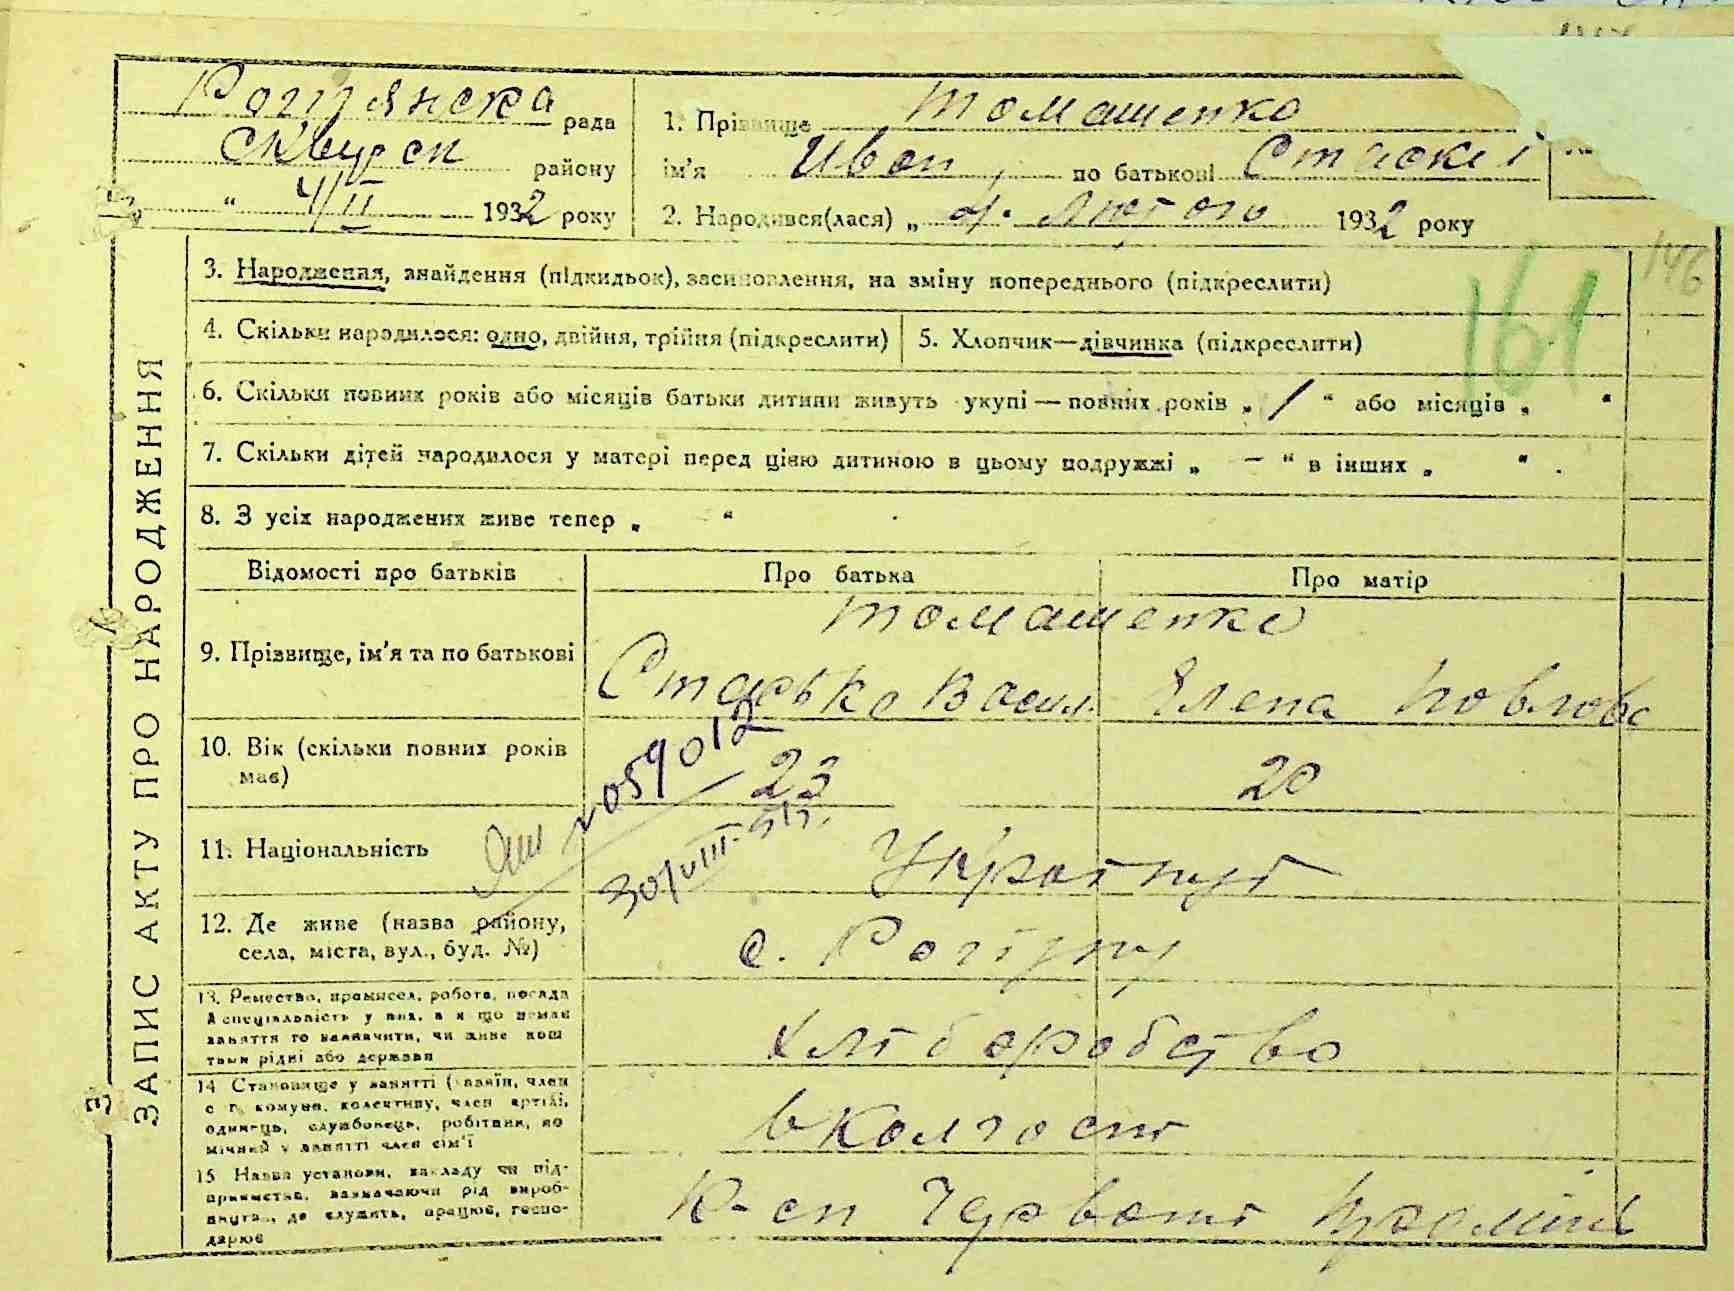 Рогізнянска рада
Сквирск району
" 4/II 1932 року
1. Прізвище Томашенко
ім'я Иван, по батькові Стаскі
2. Народився(лася) „ 4. Лютого 1932 року
146
161
ЗАПИС АКТУ ПРО НАРОДЖЕННЯ
3. Народження, знайдення (підкидьок), засиновлення, на зміну попереднього (підкреслити)
4. Скільки народилося: одно, двійня, трійня (підкреслити)
5. Хлопчик—дівчинка (підкреслити)
6. Скільки повних років або місяців батьки дитини живуть укупі — повних років „ 1 “ або місяців „ “
7. Скільки дітей народилося у матері перед цією дитиною в цьому подружжі „ — “ в інших „ “ .
8. З усіх народжених живе тепер „ “
Відомості про батьків Про батька Про матір
Томашенко
9. Прізвище, ім'я та по батькові Стасько Васил. Елена Повлова
10. Вік (скільки повних років має) 23 20
2059012
30/VIII
11. Національність Українці
12. Де живе (назва району, села, міста, вул., буд. №) с. Рогізну
13. Ремество, промисел, робота, посада й спеціяльність у них, а як що немає заняття то зазначити, чи живе кош тами рідні або держави
хліборобство
14 Становище у занятті (хазяїн, член с г. комуни, колективу, член артілі, одинець, службовець, робітник, по мічний у занятті член сім'ї
в колгоспі
15 Назва установи, закладу чи під-
приємства, зазначаючи рід вироб-
ництва, де служить, працює, госпо-
дарює
К-сп Червоні Проміні